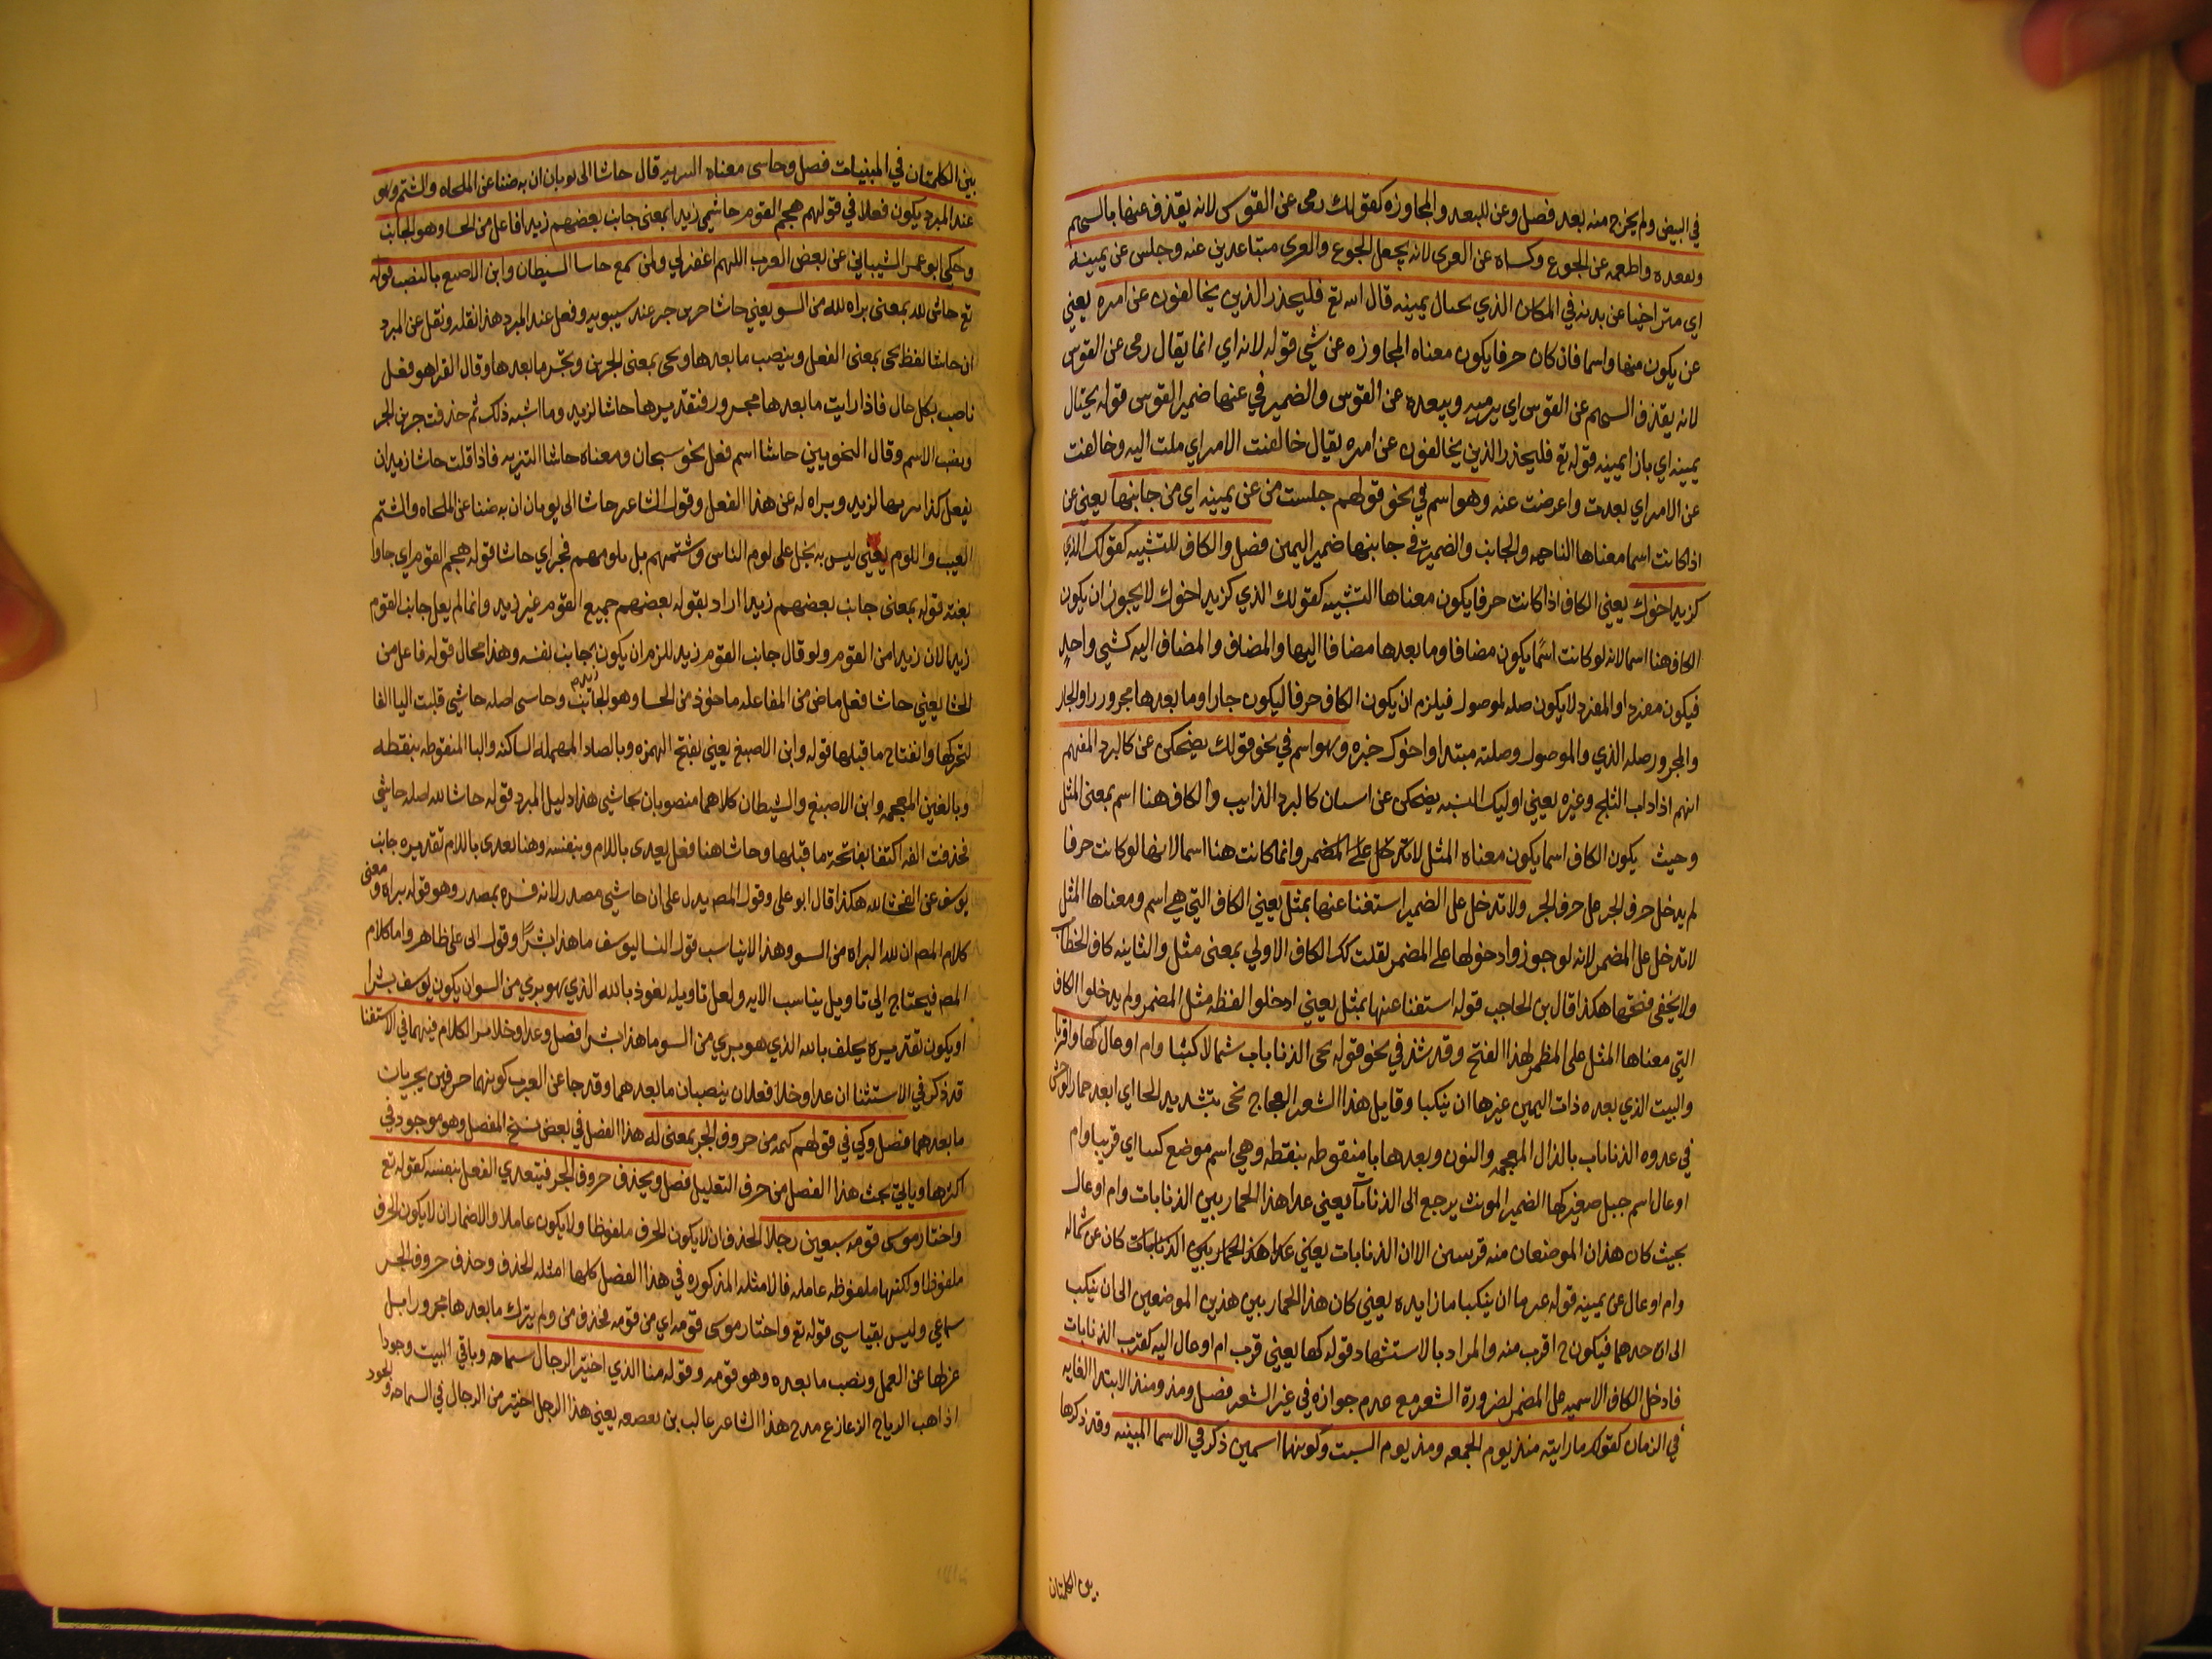 في البيض ولم يخرج منه بعد فصل وعن للبعد والمجاوزه كقولك رمى عن القوس لانه يقذف عنها بالسهم
وبعده واطعمه عن الجوع وكساه عن العرى لانه يجعل الجوع والعرى متباعدين عنه وجلس عن يمينه
اي متراخيا عن بدنه في المكان الذي بحيال يمينه قال الله تع فليحذر الذين يخالفون عن امره يعني
عن يكون منها واسما فان كان حرفا يكون معناه المجاوزه عن شي قوله لانه اي انما يقال رمى عن القوس
لانه يقذف السهم عن القوس اي يرميه ويبعده عن القوس والضمير في عنها ضمير القوس قوله بحيال
يمينه اي بازا يمينه قوله تع فليحذر الذين يخالفون عن امره يقال خالفت الامر اي ملت اليه وخالفت
عن الامر اي بعدت واعرضت عنه وهو اسم في نحو قولهم جلست من عن يمينه اي من جانبها يعني عن
اذا كانت اسما معناها الناحيه والجانب والضمير في جانبها ضمير اليمين فصل والكاف للتشبيه كقولك الذي
كزيد اخوك يعني الكاف اذا كانت حرفا يكون معناها التشبيه كقولك الذي كزيد اخوك لا يجوز ان يكون
الكاف هنا اسما لانه لو كانت اسمًا يكون مضافا وما بعدها مضافا اليها والمضاف والمضاف اليه كشي واحدٍ
فيكون مفردا والمفرد لا يكون صله لموصول فيلزم ان يكون الكاف حرفا ليكون جارا وما بعدها مجرورا والجار
والمجرور صله الذي والموصول وصلته مبتدا واخوك خبره وهو اسم في نحو قولك يضحكن عن كالبرد المنهم
انهم اذا ذاب الثلج وغيره يعني اوليك النسه يضحكن عن اسنان كالبرد الذايب والكاف هنا اسم بمعنى المثل
وحيث يكون الكاف اسما يكون معناه المثل لا تدخل على المضمر وانما كانت هنا اسما لانها لو كانت حرفا
لم يدخل حرف الجر على حرف الجر ولا تدخل على الضمير استغنا عنها بمثل يعني الكاف التي هي اسم ومعناها المثل
لا تدخل على المضمر لانه لو جوزوا دخولها على المضمر لقلت كك الكاف الاولى بمعنى مثل والثانيه كاف الخطاب
ولا يخفى فتحها هكذا قال بن الحاجب قوله استغنا عنها بمثل يعني ادخلوا لفظه مثل المضمر ولم يدخلوا الكاف
التي معناها المثل على المظمر لهذا الفتح وقد شذ في نحو قوله نحى الذنابات شمالا كثبا وام اوعال كها واقربا
والبيت الذي بعده ذات اليمين غيرها ان ينكبا وقايل هذا الشعر العجاج نحى بتشديد الحا اي ابعد حمار الوحش
في عدوه الذنابات بالذال المعجمه والنون وبعدها با منقوطه بنقطه وهي اسم موضع كثبا اي قريبا وام
اوعال اسم جبل صغير كها الضمير المونث يرجع الى الذنابات يعني عدا هذا الحمار بين الذنابات وام اوعال
بحيث كان هذان الموضعان منه قريبين الا ان الذنابات يعني عدا هذا الحمار بين الذنابات كان عن شماله
وام اوعال عن يمينه قوله غيرها ان ينكبا ما زايده يعني كان هذا الحمار بين هذين الموضعين الى ان ينكب
الى احدهما فيكون ح اقرب منه والمراد بالاستشهاد قوله كها يعني قرب ام اوعال اليه كقرب الذنابات
فادخل الكاف الاسميه على المضمر لضرورة الشعر مع عدم جوازه في غير الشعر فصل ومذ ومنذ لابتدا الغايه
في الزمان كقولك ما رايته منذ يوم الجمعه ومذ يوم السبت وكونهما اسمين ذكر في الاسما المبنيه وقد ذكرها
بين الكلمتان
بين الكلمتان في المبنيات فصل وحاشى معناه التنزيه قال حاشا ابى ثوبان ان به ضنا عن الملحاه والشتم وهو
عند المبرد يكون فعلا في قولهم هجم القوم حاشى زيدا بمعنى جانب بعضهم زيدا فاعل من الحشا وهو الجانب
وحكى ابو عمر الشيباني عن بعض العرب اللهم اغفر لي ولمن سمع حاشا الشيطان وابن الاصبع بالنصب قوله
تع حاش لله بمعنى براه لله من السو يعني حاشا حرف جر عند سيبويه وفعل عند المبرد هذا نقله ونقل عن المبرد
ان حاشا لفظ يجى بمعنى الفعل وينصب ما بعدها ويجى بمعنى الحرف ويجر ما بعدها وقال الفراهو فعل
ناصب بكل حال فاذا رايت ما بعدها مجرور فتقديرها حاشا لزيد وما اشبه ذلك ثم حذفت حرف الجر
ونصب الاسم وقال النحويين حاشا اسم فعل نحو سبحان ومعناه حاشا التنزيه فاذا قلت حاشا زيد ان
يفعل كذا تنزيها لزيد وبراه له عن هذا الفعل وقول الشاعر حاشا ابى ثوبان ان به ضنا عن الملحاه والشتم
العيب واللوم يعني ليس به بخل على لوم الناس وشتمهم بل يلومهم فجر اي حاشا قوله هجم القوم اي جاوا
بغته قوله بمعنى جانب بعضهم زيدا اراد بقوله بعضهم جميع القوم غير زيد وانما لم يقل جانب القوم
زيدا لان زيدا من القوم ولو قال جانب القوم زيد للزم ان يكون يجانب نفسه وهذا محال قوله فاعل من
الحشا يعني حاشا فعل ماض من المفاعله ماخوذ من الحشا وهو الجانب وحاسى اصله حاشي قلبت اليا الفا
لتحركها وانفتاح ما قبلها قوله وابن الاصبغ يعني بفتح الهمزه وبالصاد المهمله الساكنه والبا المنقوطه بنقطه
وبالغين المعجمه وابن الاصبغ والشيطان كلاهما منصوبان بحاشى هذا دليل المبرد قوله حاشا لله اصله حاشى
فحذفت الفه اكتفا بفاتحة ما قبلها وحاشا هنا فعل يعدى باللام وبنفسه وهنا يعدى باللام تقديره جانب
يوسف عن الفحشا لله هكذا قال ابو على وقول المصه يدل على ان حاشى مصدر لانه فسره بمصدر وهو قوله براه ومعنى
كلام المصه ان لله البراه من السو وهذا لا يناسب قول النسا ليوسف ما هذا بشرًا وقول ابى على ظاهر واما كلام
المصه فيحتاج الى تاويل يناسب الايه ولعل تاويله نعوذ بالله الذي هو بري من السو ان يكون يوسف بشرا
او يكون تقديره يحلف بالله الذي هو بري من السو ما هذا بشرا فصل وعدا وخلا مر الكلام فيهما في الاستثنا
قد ذكر في الاستثنا ان عدا وخلا فعلان ينصبان ما بعدهما وقد جا عن العرب كونهما حرفين يجريان
ما بعدهما فصل وكي في قولهم كيمه من حروف الجر بمعنى لمه هذا الفصل في بعض نسخ المفصل وهو موجود في
اكثرها وياتي بحث هذا الفصل من حرف التعليل فصل ويحذف حروف الجر فيتعدي الفعل بنفسه كقوله تع
واختار موسى قومه سبعين رجلا الحذف ان لا يكون الحرف ملفوظا ولا يكون عاملا والاضمار ان لا يكون الحرف
ملفوظا ولكنها ملفوظه عامله فالامثله المذكوره في هذا الفصل كلها امثله الحذف وحذف حروف الجر
سماعي وليس بقياسي قوله تع واختار موسى قومه اي من قومه فحذف من ولم يترك ما بعدها مجرورا بل
عزلها عن العمل ونصب ما بعده وهو قومه وقوله منا الذي اختير الرجال سماحه وباقي البيت وجودا
اذا هب الرياح الزعازع مدح هذا الشاعر غالب بن صعصعه يعني هذا الرجل اختير من الرجال في السماحه والجود